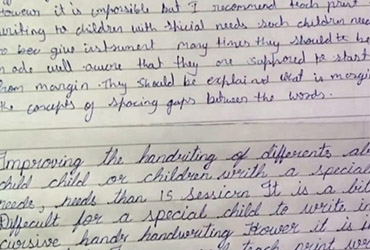 However it is impossible but I recommend teach print
writing to children with spicial needs such children need
to bee give instrument many times they should to be
made well awere that they are supposed to start
from margin. They should be explained what is margin
the concepts of spacing gaps between the words.
Improving the handriting of differents ale
child child or children writh a special
needs, needs than 15 session It is a bit
Difficult for a special child to write in
cursive handr handwriting Hower it is i
teach print wr